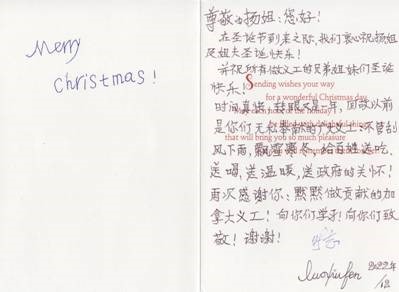 Merry
Christmas!
尊敬的扬姐:您好!
在圣诞节到来之际,我们衷心祝扬姐
及姐夫圣诞快乐!
并祝所有做义工的兄弟姐妹们圣诞
快乐!
Sending wishes your way
for a wonderful Christmas day
时间真快,转眼又是一年,回顾以前
With each hour of the holiday
是你们无私奉献的义工:不管刮
be filled with delightful things
that will bring you so much pleasure
风下雨,飘雪寒冬,给百姓送吃、
送喝,送温暖,送政府的关怀!
再次感谢你:默默做贡献的加
拿大义工!向你们学习!向你们致
敬!谢谢!
luoxiufen
2022年
/12